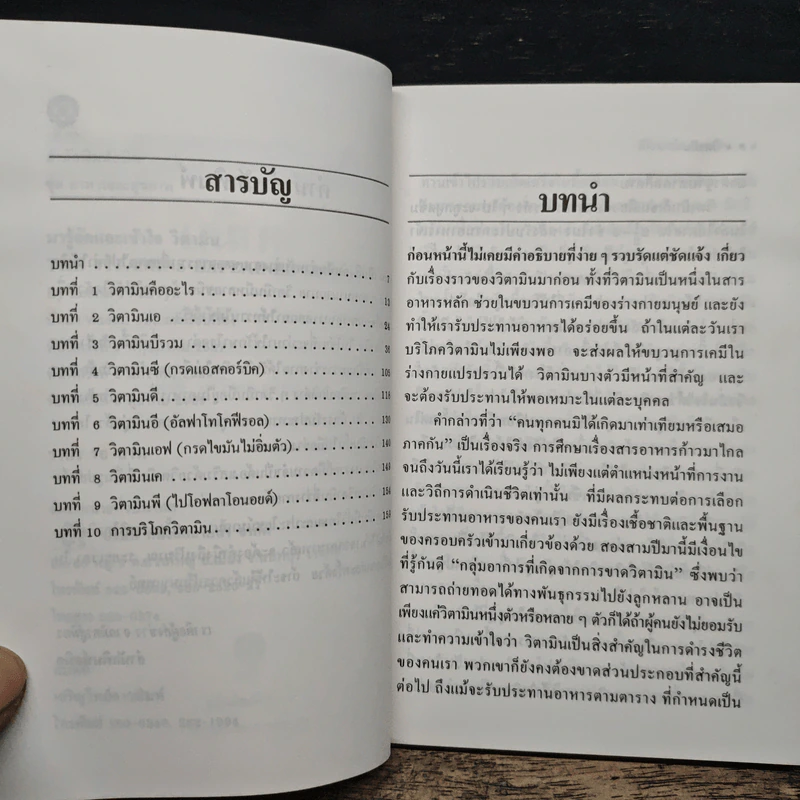 สารบัญ
บทนำ . . . . . . . . . . . . . . . . . . . . . . . . . . . . . . 7
บทที่ 1 วิตามินคืออะไร . . . . . . . . . . . . . . . . . .
บทที่ 2 วิตามินเอ . . . . . . . . . . . . . . . . . . . . . 24
บทที่ 3 วิตามินบีรวม . . . . . . . . . . . . . . . . . . . 36
บทที่ 4 วิตามินซี (กรดแอสคอร์บิค) . . . . . . . . . . . 108
บทที่ 5 วิตามินดี . . . . . . . . . . . . . . . . . . . . . 118
บทที่ 6 วิตามินอี (อัลฟาโทโคฟีรอล) . . . . . . . . . . . 130
บทที่ 7 วิตามินเอฟ (กรดไขมันไม่อิ่มตัว) . . . . . . . . . 140
บทที่ 8 วิตามินเค . . . . . . . . . . . . . . . . . . . . .
บทที่ 9 วิตามินพี (ไปโอฟลาโอนอยด์) . . . . . . . . . .
บทที่ 10 การบริโภควิตามิน . . . . . . . . . . . . . . . .
บทนำ
ก่อนหน้านี้ไม่เคยมีคำอธิบายที่ง่าย ๆ รวบรัดแต่ชัดแจ้ง เกี่ยว
กับเรื่องราวของวิตามินมาก่อน ทั้งที่วิตามินเป็นหนึ่งในสาร
อาหารหลัก ช่วยในขบวนการเคมีของร่างกายมนุษย์ และยัง
ทำให้เรารับประทานอาหารได้อร่อยขึ้น ถ้าในแต่ละวันเรา
บริโภควิตามินไม่เพียงพอ จะส่งผลให้ขบวนการเคมีใน
ร่างกายแปรปรวนได้ วิตามินบางตัวมีหน้าที่สำคัญ และ
จะต้องรับประทานให้พอเหมาะในแต่ละบุคคล
คำกล่าวที่ว่า “คนทุกคนมิได้เกิดมาเท่าเทียมหรือเสมอ
ภาคกัน” เป็นเรื่องจริง การศึกษาเรื่องสารอาหารก้าวมาไกล
จนถึงวันนี้เราได้เรียนรู้ว่า ไม่เพียงแต่ตำแหน่งหน้าที่การงาน
และวิถีการดำเนินชีวิตเท่านั้น ที่มีผลกระทบต่อการเลือก
รับประทานอาหารของคนเรา ยังมีเรื่องเชื้อชาติและพื้นฐาน
ของครอบครัวเข้ามาเกี่ยวข้องด้วย สองสามปีมานี้มีเงื่อนไข
ที่รู้กันดี “กลุ่มอาการที่เกิดจากการขาดวิตามิน” ซึ่งพบว่า
สามารถถ่ายทอดได้ทางพันธุกรรมไปยังลูกหลาน อาจเป็น
เพียงแค่วิตามินหนึ่งตัวหรือหลาย ๆ ตัวก็ได้ถ้าผู้คนยังไม่ยอมรับ
และทำความเข้าใจว่า วิตามินเป็นสิ่งสำคัญในการดำรงชีวิต
ของคนเรา พวกเขาก็ยังคงต้องขาดส่วนประกอบที่สำคัญนี้
ต่อไป ถึงแม้จะรับประทานอาหารตามตาราง ที่กำหนดเป็น